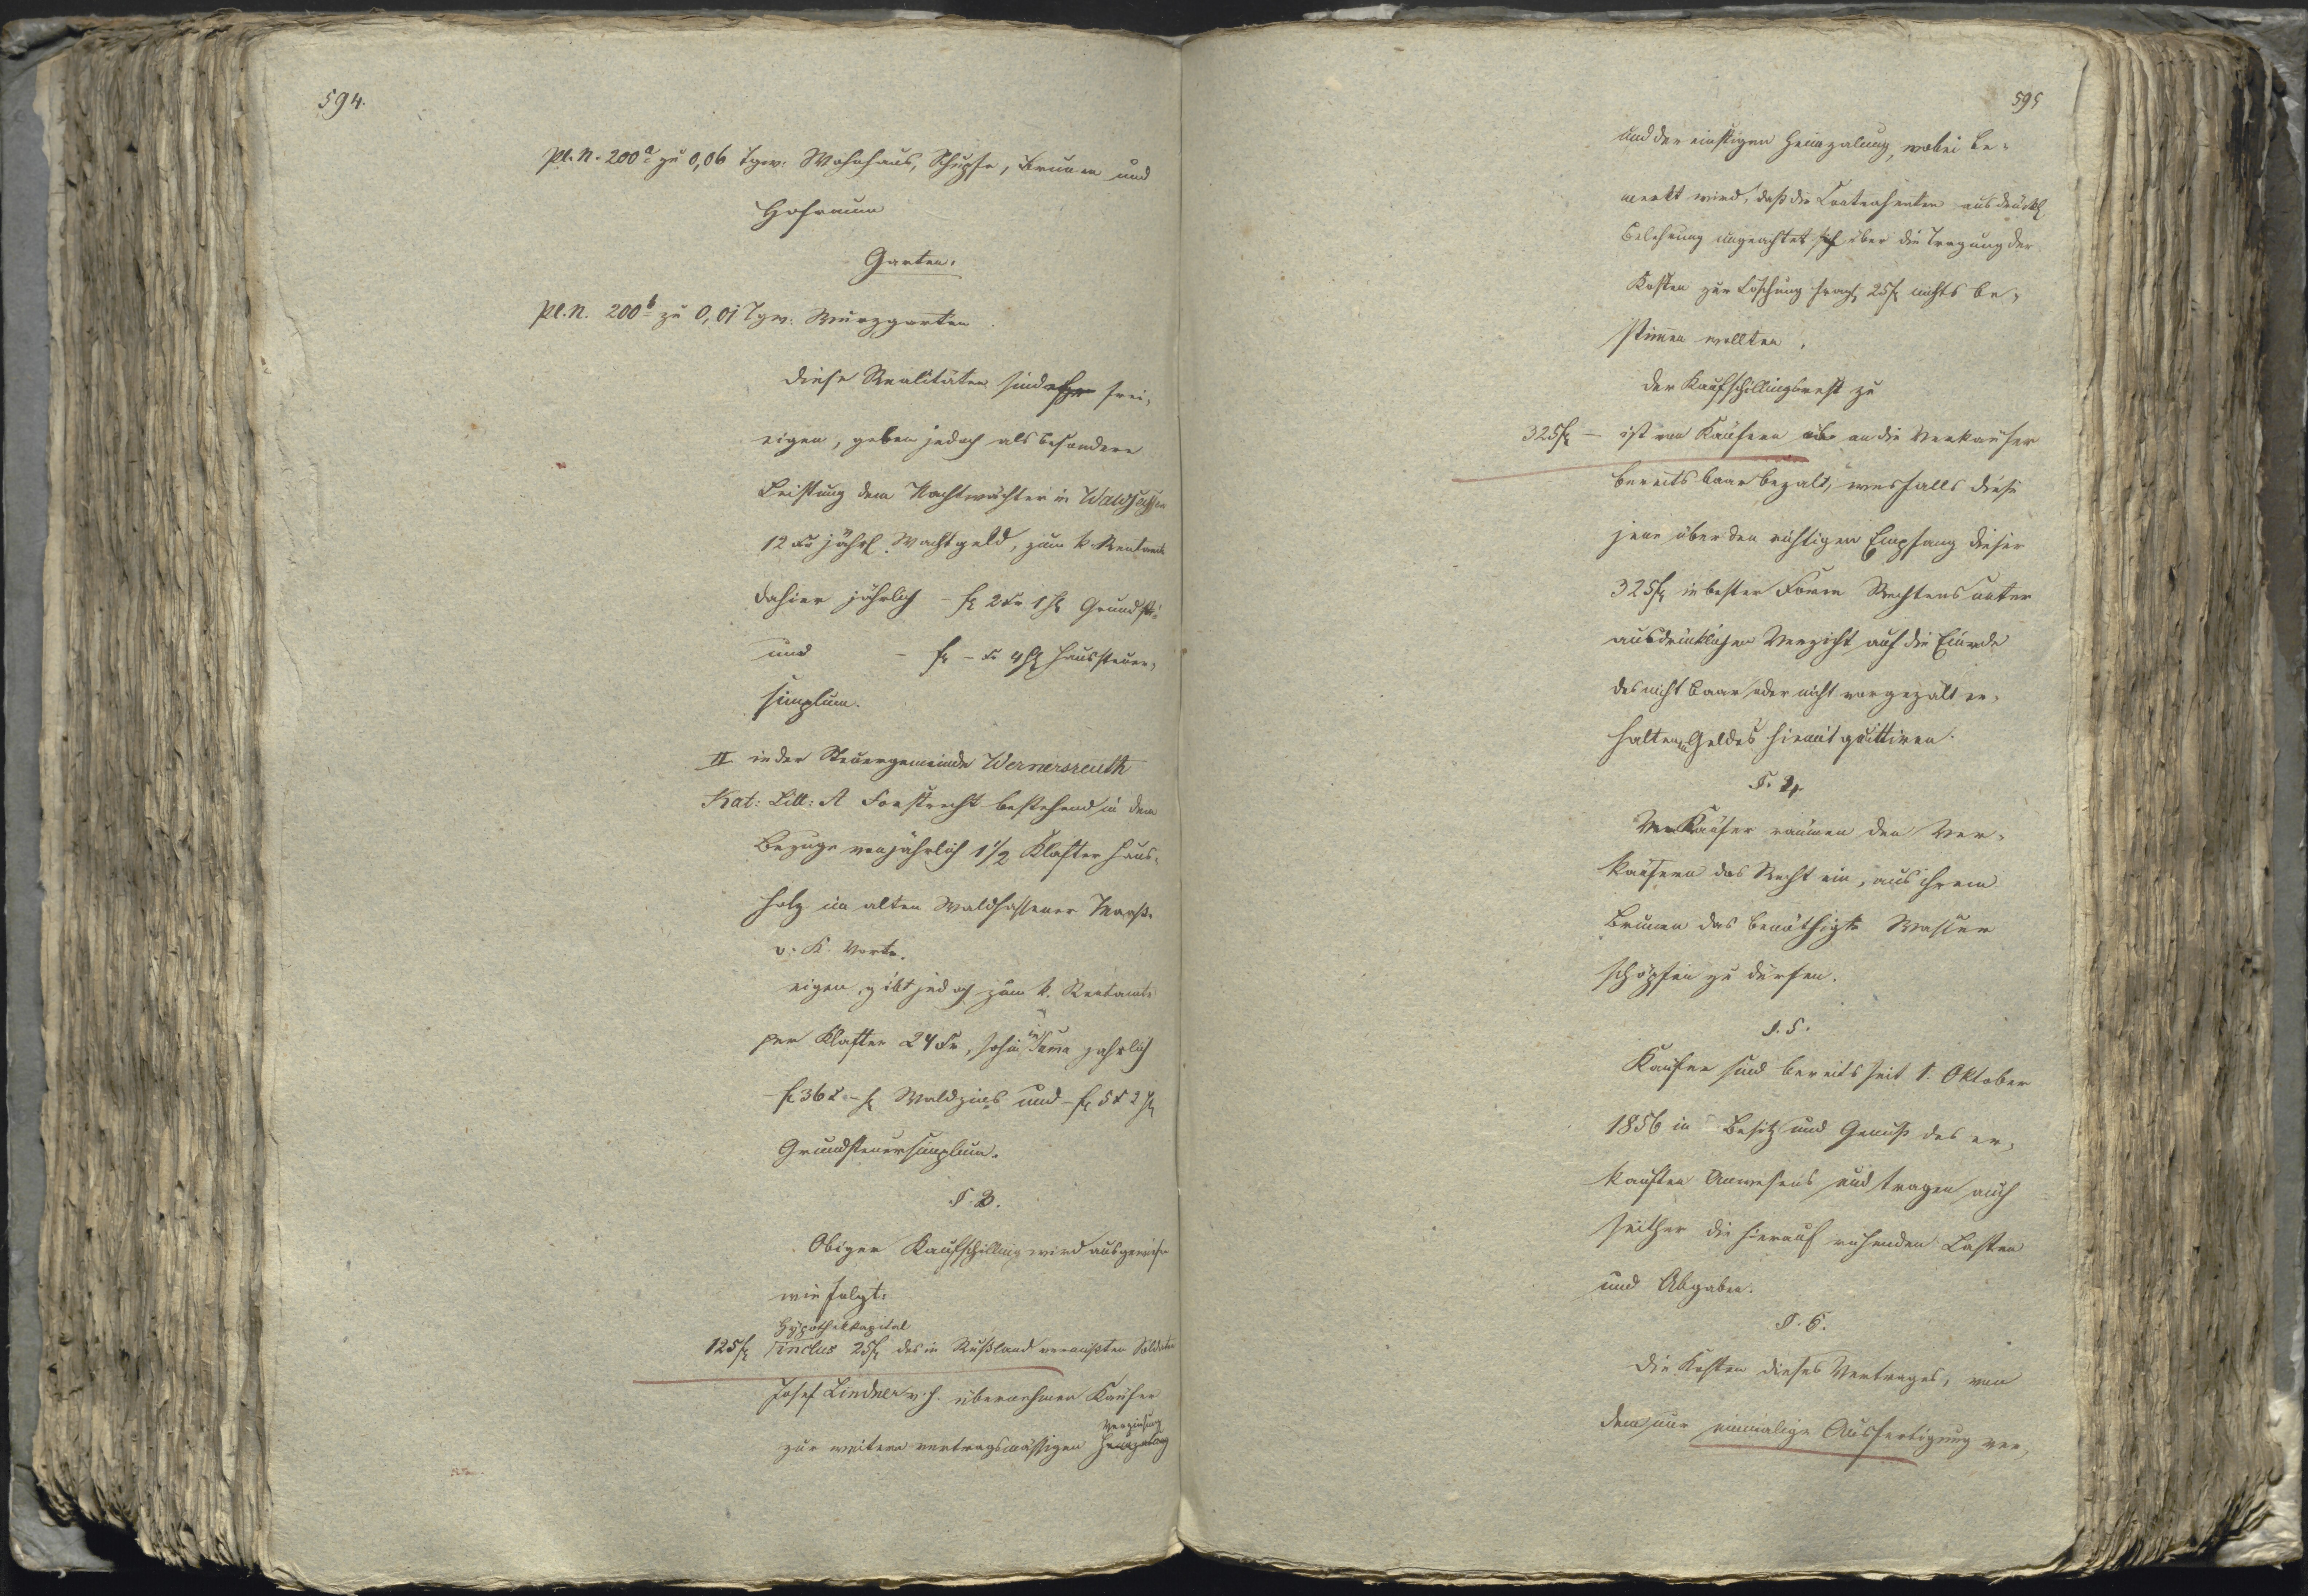 594.
Pl. N. 200a zu 0,06 Tgw. Wohnhaus, Schupfe, Brunen und
Hofraum
Garten.
Pl. N. 200b zu 0,01 Tgw. Wurzgarten
Diese Realitäten sind frei-
eigen, geben jedoch als besondere
Leistung dem Nachtwächter in Waldsassen
12 Kr jährl. Wachtgeld, zum k. Rentamte
dahier jährlich - fl 2 Kr 1 hl Grundst:
und - fl - Kr 4 hl Haussteuer-
simplum.
II in der Steuergemeinde Wernersreuth
Kat: Litt: A Forstrecht bestehend in dem
Bezuge von jährlich 1 1/2 Klafter Haus-
holz im alten Waldsassener Maaße
v. K. Worte.
eigen, gibt jedoch zum k. Rentamte
per Klafter 24 Kr, sohin in Suma jährlich
- fl 36 Kr - hl Waldzins und - fl 5 Kr 2 hl
Grundsteuersimplum.
§. 3.
Obiger Kaufschilling wird ausgewiesen
wie folgt:
Hypothekkapital
125 fl inclus 25 fl des in Rußland vermißten Soldaten
Josef Lindner v. h. übernehmen Käufer
Verzinsung
zur weitern vertragsmässigen Heimzalung
595
und der einstigen Heimzalung, wobei be-
merkt wird, daß die Contrahenten ausdrückl
Belehrung ungeachtet sich über die Tragung der
Kosten zur Löschung fragl. 25 fl nichts be-
stimen wollten.
Der Kaufschillingsrest zu
325 fl - ist von Käufern an die Verkäufer
bereits baar bezalt, wesfalls diese
jene über den richtigen Empfang dieser
325 fl in bester Form Rechtens unter
ausdrücklichen Verzicht auf die Einrede
des nicht baar oder nicht vorgezält er-
haltenen Geldes hiemit quittiren.
§. 4.
Verkäufer räumen den Ver-
käufern das Recht ein, aus ihrem
Brunen das benöthigte Wasser
schöpfen zu dürfen.
§. 5.
Käufer sind bereits seit 1. Oktober
1856 in Besitz und Genuß des er-
kauften Anwesens und tragen auch
seither die hierauf ruhenden Lasten
und Abgaben.
§. 6.
Die Kosten dieses Vertrages, von
dem nur einmalige Ausfertigung ver-